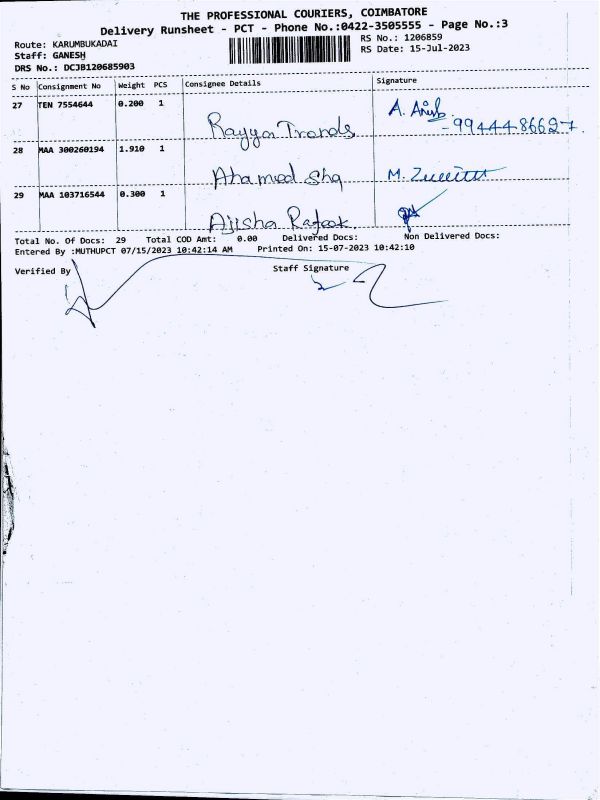 THE PROFESSIONAL COURIERS, COIMBATORE
Delivery Runsheet - PCT - Phone No.:0422-3505555 - Page No.:3
Route: KARUMBUKADAI
RS No.: 1206859
Staff: GANESH
RS Date: 15-Jul-2023
DRS No.: DCJB120685903
S No Consignment No Weight PCS Consignee Details Signature
27 TEN 7554644 0.200 1
A.
Rayyan Trends - 9944486627
28 MAA 300260194 1.910 1
Ahamed Sha M.
29 MAA 103716544 0.300 1
Ajisha Rafeek
Total No. Of Docs: 29 Total COD Amt: 0.00 Delivered Docs: Non Delivered Docs:
Entered By :MUTHUPCT 07/15/2023 10:42:14 AM Printed On: 15-07-2023 10:42:10
Verified By Staff Signature